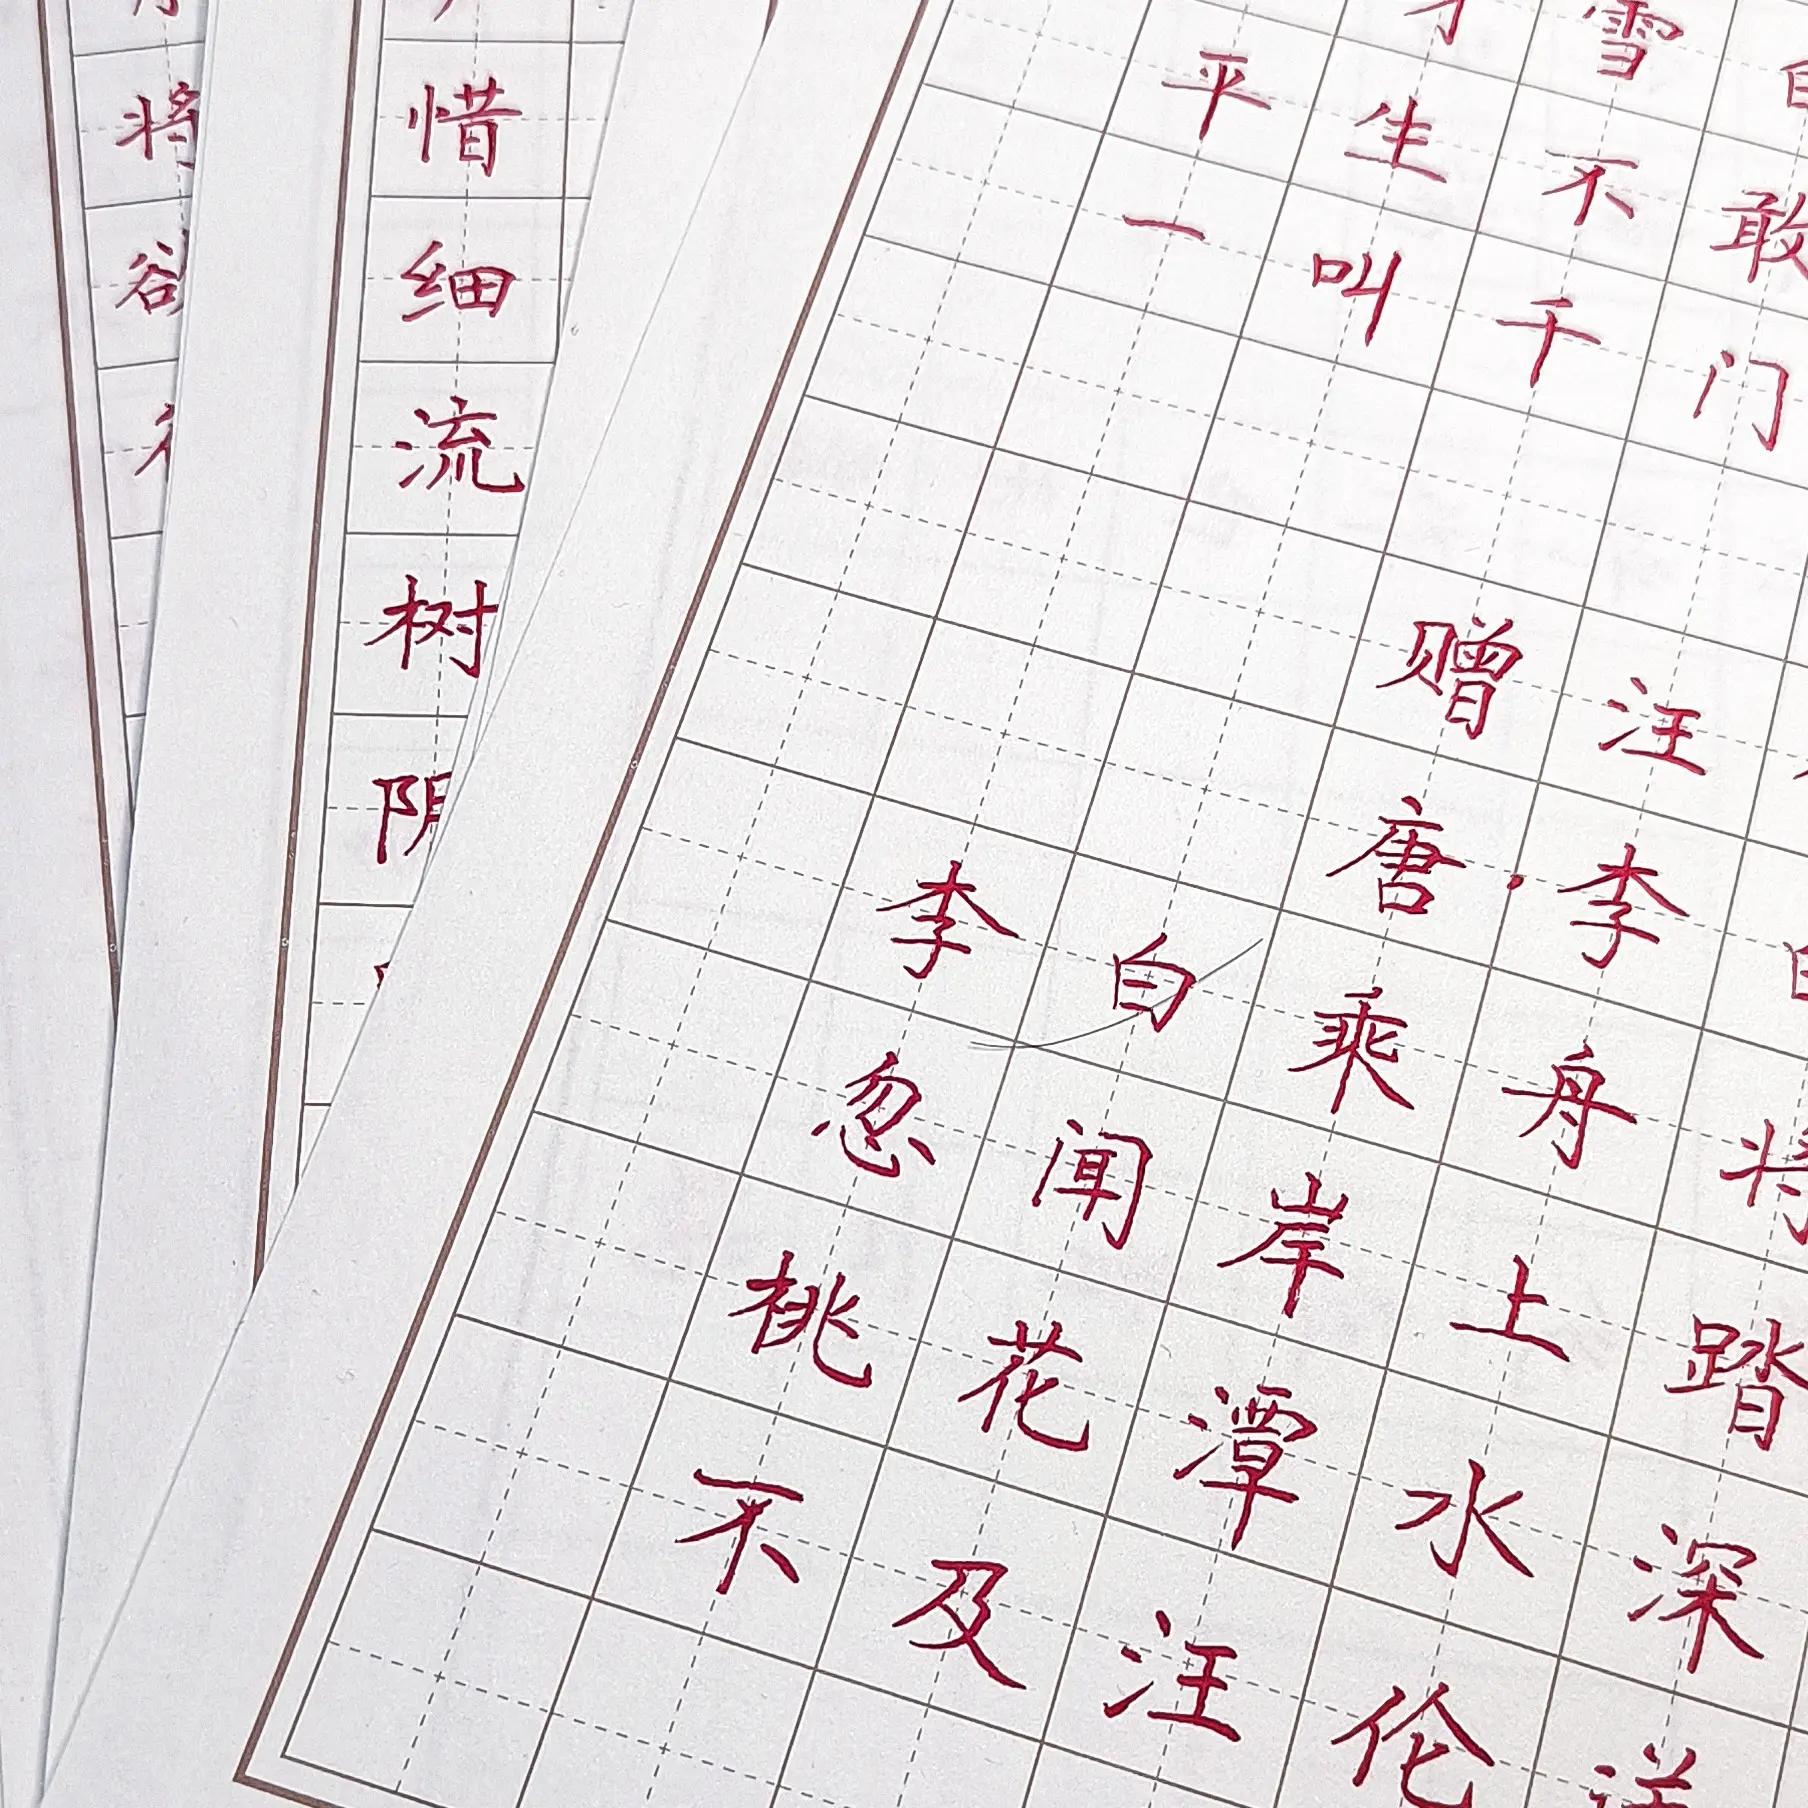 将
欲
惜
细
流
树
阴
雪白
平生不敢
一叫千门
赠汪
唐·李白
李白乘舟将
忽闻岸上踏
桃花潭水深
不及汪伦送